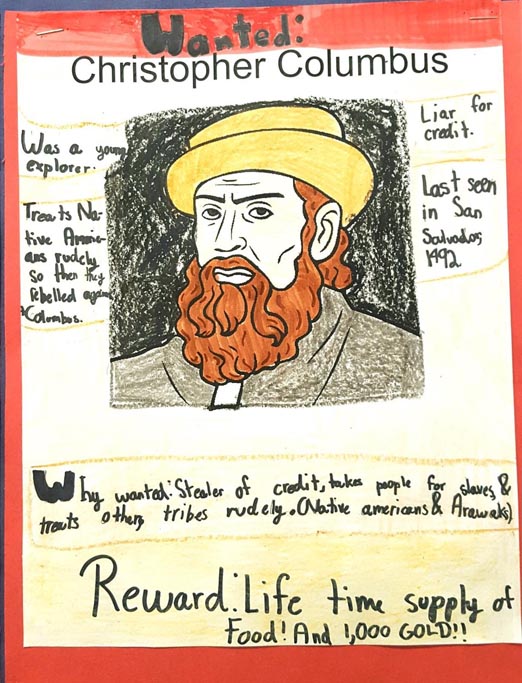 Wanted:
Christopher Columbus
Was a young
explorer.
Treats Na-
tive Ameri-
ans rudely
so then they
rebelled against
Columbus.
Liar for
credit.
Last seen
in San
Salvador,
1492
Why wanted: Stealer of credit, takes people for slaves, &
treats others tribes rudely. (Native americans & Arawaks)
Reward: Life time supply of
Food! And 1,000 GOLD!!